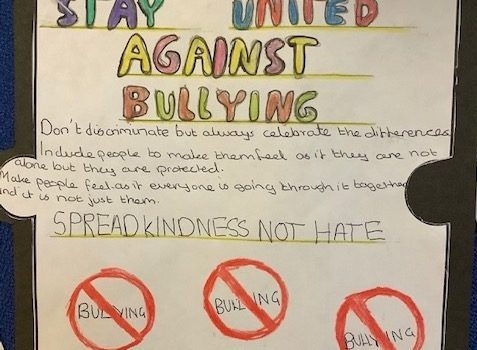 STAY UNITED
AGAINST
BULLYING
Don't discriminate but always celebrate the differences
Include people to make them feel as if they are not
alone but they are protected.
Make people feel as if everyone is going through it together
and it is not just them.
SPREAD KINDNESS NOT HATE
BULLYING
BULLYING
BULLYING